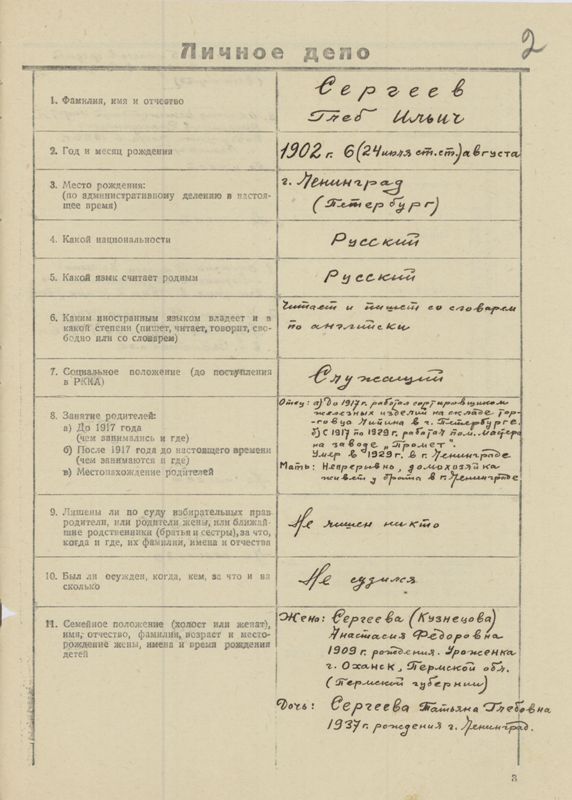 2
Личное дело
1. Фамилия, имя и отчество
Сергеев
Глеб Ильич
2. Год и месяц рождения
1902 г. 6 (24 июля ст.ст.) августа
3. Место рождения:
(по административному делению в настоя-
щее время)
г. Ленинград
(Петербург)
4. Какой национальности
Русский
5. Какой язык считает родным
Русский
6. Каким иностранным языком владеет и в
какой степени (пишет, читает, говорит, сво-
бодно или со словарем)
Читает и пишет со словарем
по английски
7. Социальное положение (до поступления
в РККА)
Служащий
8. Занятие родителей:
а) До 1917 года
(чем занимались и где)
б) После 1917 года до настоящего времени
(чем занимаются и где)
в) Местонахождение родителей
Отец: а) До 1917 г. работал сортировщиком
железных изделий на складе тор-
говца в г. Петербурге.
б) С 1917 по 1929 г. работал пом. мастера
на заводе „Промет".
Умер в 1929 г. в г. Ленинграде
Мать: Непрерывно, домохозяйка
живет у брата в г. Ленинграде
9. Лишены ли по суду избирательных прав
родители, или родители жены, или ближай-
шие родственники (братья и сестры), за что,
когда и где, их фамилии, имена и отчества
Не лишен никто
10. Был ли осужден, когда, кем, за что и на
сколько
Не судился
11. Семейное положение (холост или женат),
имя, отчество, фамилия, возраст и место-
рождение жены, имена и время рождения
детей
Жена: Сергеева (Кузнецова)
Анастасия Фёдоровна
1909 г. рождения. Уроженка
г. Оханск, Пермской обл.
(Пермской губернии)
Дочь: Сергеева Татьяна Глебовна
1937 г. рождения г. Ленинград.
3